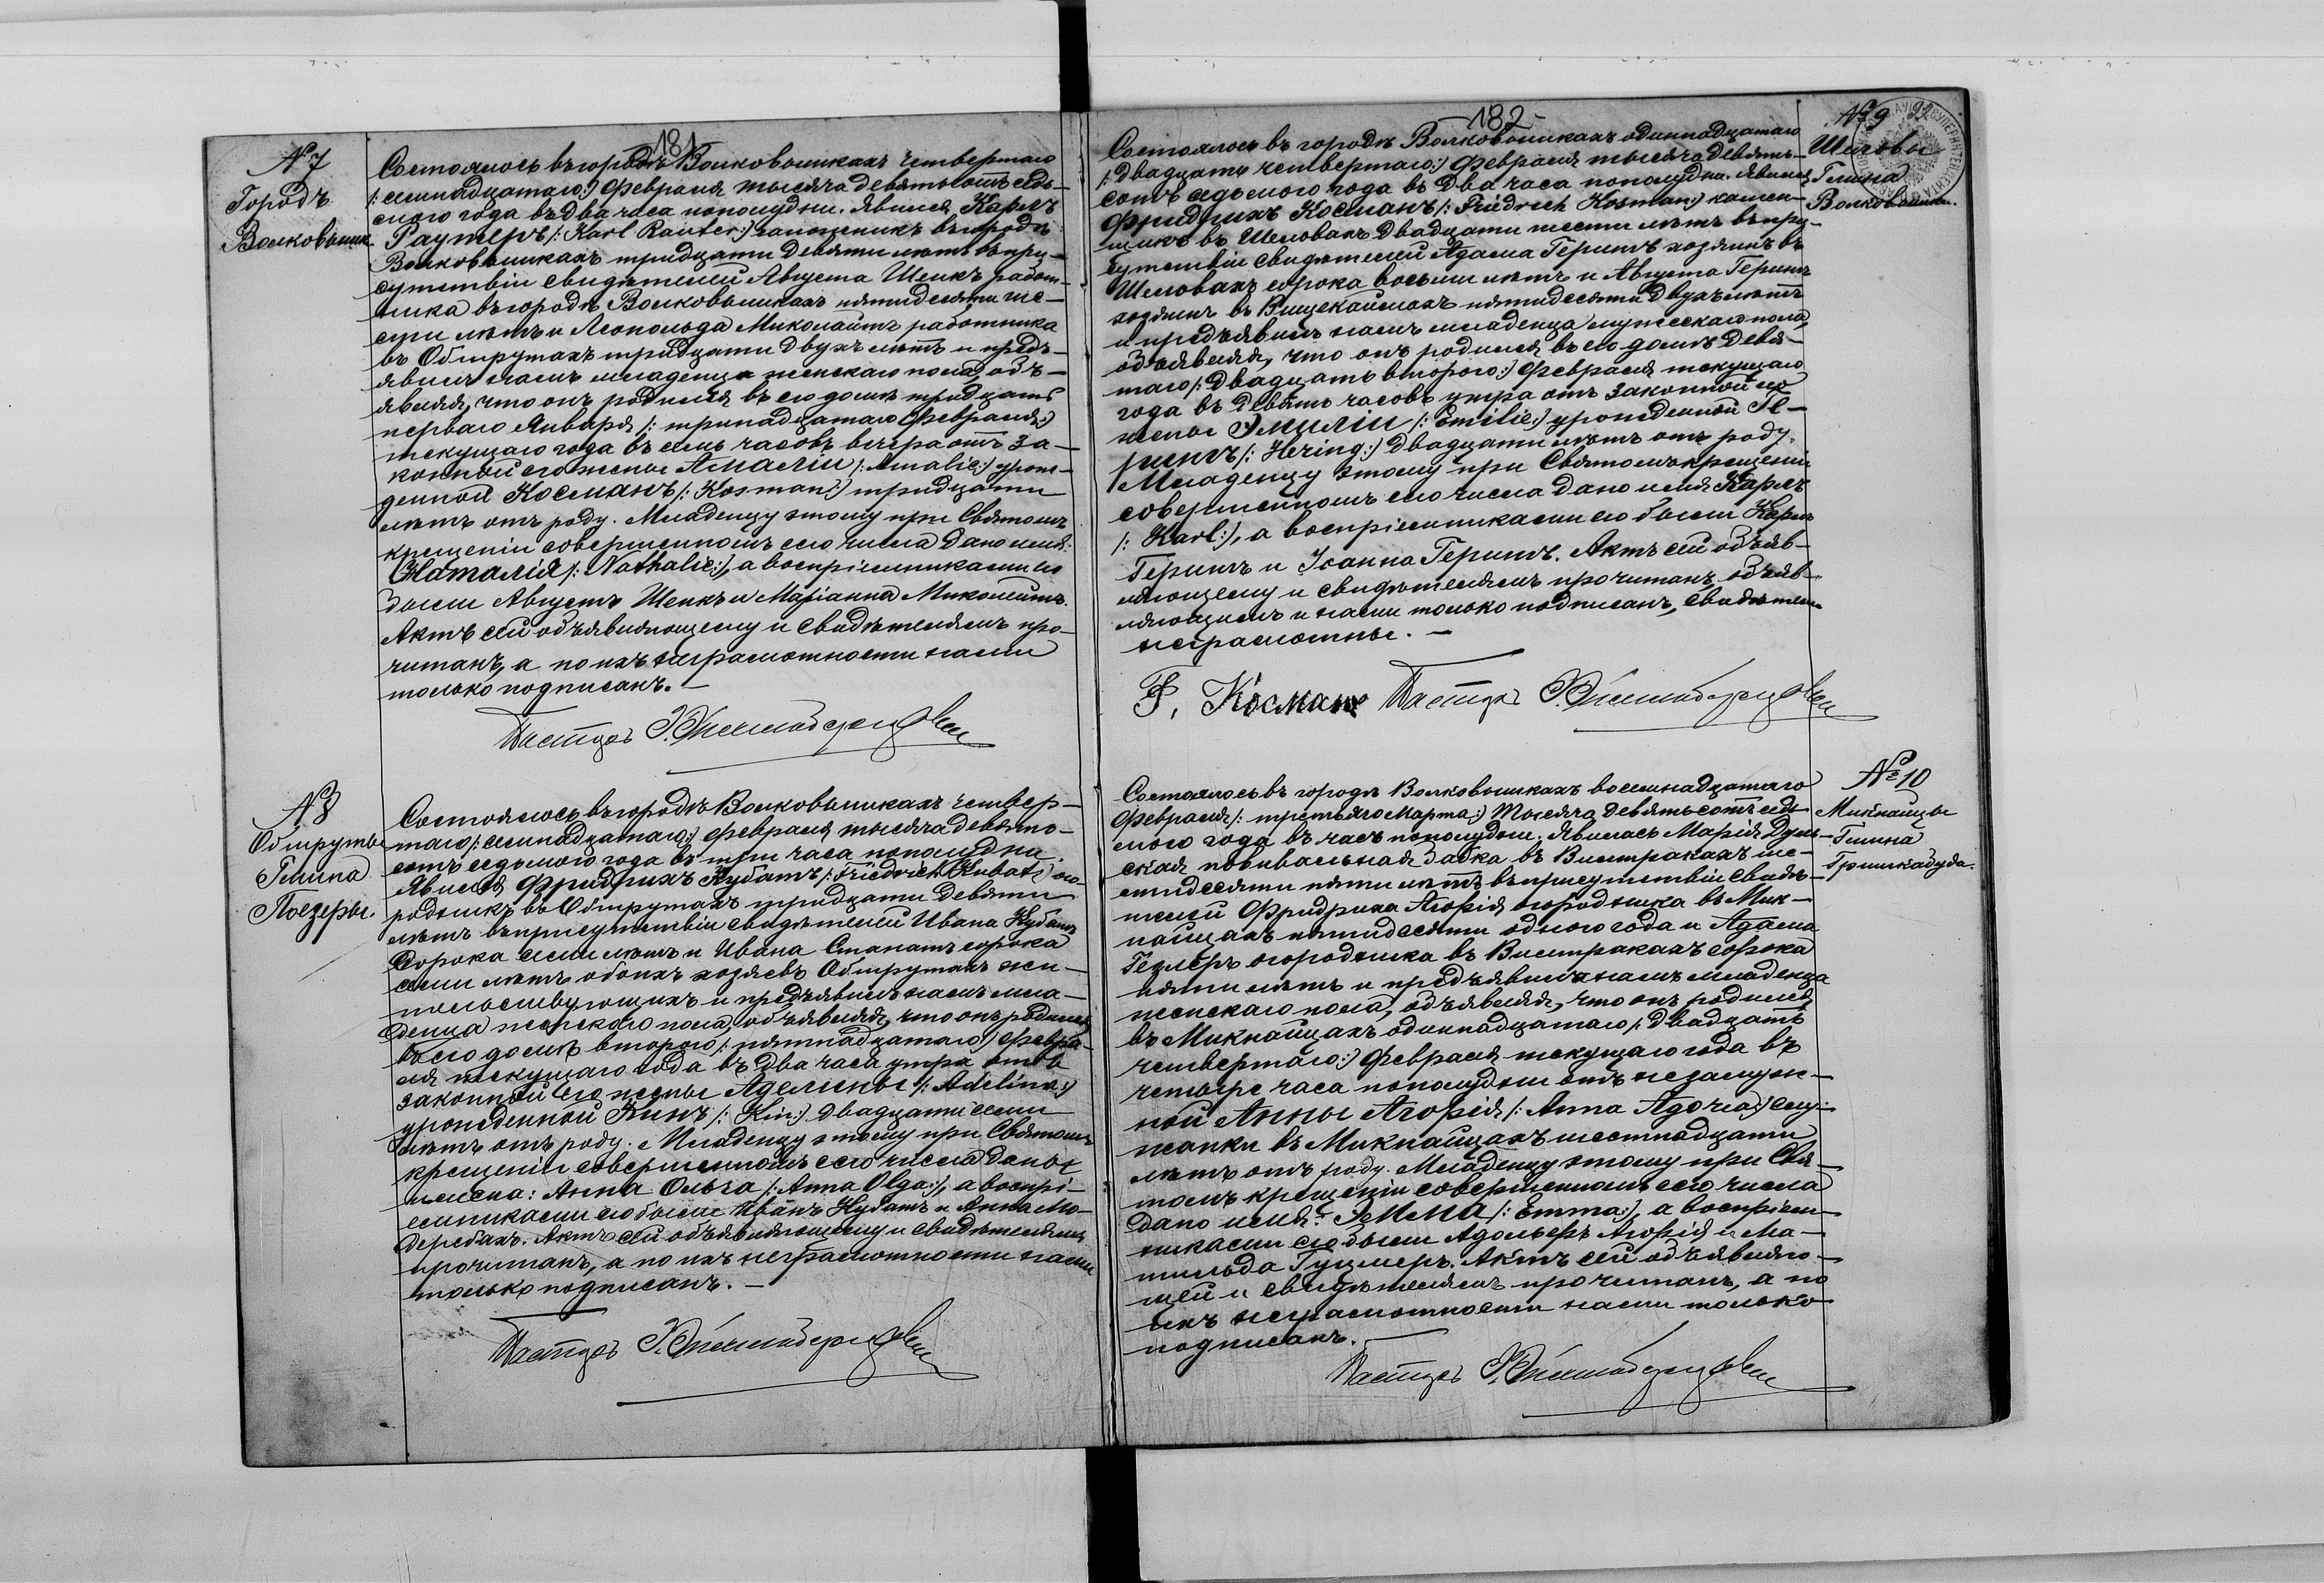 181
№ 7
Городъ
Волковышк.
Состоялось въ городѣ Волковышкахъ четвертаго
/: семнадцатаго:/ Февраля тысяча девятьсотъ седь-
мого года въ два часа пополудни. Явился Карлъ
Раутеръ /: Karl Rauter:/ сапожникъ въ городѣ
Волковышкахъ тридцати девяти лѣтъ въ при-
сутствіи свидѣтелей Августа Шенкъ работ-
ника въ городѣ Волковышкахъ пятидесяти ше-
сти лѣтъ и Леопольда Миколайтъ работника
въ Обшрутахъ тридцати двухъ лѣтъ и предъ-
явилъ намъ младенца женскаго пола, объ-
являя, что онъ родился въ его домѣ тридцать
перваго Января /: тринадцатаго Февраля:/
текущаго года въ семь часовъ вечера отъ за-
конной его жены Амаліи /: Amalie:/ урож-
денной Косманъ /: Kosman:/ тридцати
лѣтъ отъ роду. Младенцу этому при Святомъ
крещеніи совершенномъ сего числа дано имя:
Наталія /: Nathalie:/, а воспріемниками его
были Августъ Шенкъ и Маріанна Миколайтъ.
Актъ сей объявляющему и свидѣтелямъ про-
читанъ, а по ихъ неграмотности нами
только подписанъ. —
Пасторъ
№ 8
Обшруты
Гмина
Поезеры.
Состоялось въ городѣ Волковышкахъ четвер-
таго /: семнадцатаго:/ Февраля тысяча девять-
сотъ седьмого года въ три часа пополудни.
Явился Фридрихъ Кубатъ /: Friedrich Kubat:/ ого-
родникъ въ Обшрутахъ тридцати девяти
лѣтъ въ присутствіи свидѣтелей Ивана Кубатъ
сорока семи лѣтъ и Ивана Станатъ сорока
семи лѣтъ обоихъ хозяевъ Обшрутахъ жи-
тельствующихъ и предъявилъ намъ мла-
денца женскаго пола, объявляя, что онъ родился
въ его домѣ второго /: пятнадцатаго:/ Февра-
ля текущаго года въ два часа утра отъ
законной его жены Аделины /: Adelina:/
урожденной Кинъ /: Kin:/ двадцати семи
лѣтъ отъ роду. Младенцу этому при Святомъ
крещеніи совершенномъ сего числа даны
имена: Анна Ольга /: Anna Olga:/, а воспрі-
емниками его были Иванъ Кубатъ и Анна
Актъ сей объявляющему и свидѣтелямъ
прочитанъ, а по ихъ неграмотности нами
только подписанъ. —
Пасторъ
182
№ 9 92
Шеловы
Гмина
Волковышки.
Состоялось въ городѣ Волковышкахъ одиннадцатаго
/: двадцать четвертаго:/ Февраля тысяча девять-
сотъ седьмого года въ два часа пополудни. Явился
Фридрихъ Косманъ /: Friedrich Kosman:/ камен-
щикъ въ Шеловахъ двадцати шести лѣтъ въ при-
сутствіи свидѣтелей Адама Герингъ хозяинъ въ
Шеловахъ сорока восьми лѣтъ и Августа Герингъ
хозяинъ въ пятидесяти двухъ лѣтъ
и предъявилъ намъ младенца мужескаго пола,
объявляя, что онъ родился въ его домѣ девя-
таго /: двадцать второго:/ Февраля текущаго
года въ девять часовъ утра отъ законной его
жены Эмиліи /: Emilie:/ урожденной Ге-
рингъ /: Hering:/ двадцати лѣтъ отъ роду.
Младенцу этому при Святомъ крещеніи
совершенномъ сего числа дано имя Карлъ
/: Karl:/, а воспріемниками его были Карлъ
Герингъ и Іоанна Герингъ. Актъ сей объяв-
ляющему и свидѣтелямъ прочитанъ, объяв-
ляющимъ и нами только подписанъ, свидѣтели
неграмотны. —
F. Косманъ Пасторъ
№ 10
Микнайцы
Гмина
Гришкабуда.
Состоялось въ городѣ Волковышкахъ восемнадцатаго
Февраля /: третьяго Марта:/ тысяча девятьсотъ седь-
мого года въ часъ пополудни. Явилась Марія Дум-
ская повивальная бабка въ Вистракахъ ше-
стидесяти пяти лѣтъ въ присутствіи свидѣ-
телей Фридриха Агорія огородника въ Мик-
найцахъ пятидесяти одного года и Адама
Гезлеръ огородника въ Вистракахъ сорока
пяти лѣтъ и предъявила намъ младенца
женскаго пола, объявляя, что онъ родился
въ Микнайцахъ одиннадцатаго /: двадцать
четвертаго:/ Февраля текущаго года въ
четыре часа пополудни отъ незамуж-
ной Анны Агорія /: Anna :/ слу-
жанки въ Микнайцахъ шестнадцати
лѣтъ отъ роду. Младенцу этому при Свя-
томъ крещеніи совершенномъ сего числа
дано имя: Эмма /: Emma:/, а воспріем-
никами его были Адольфъ Агорія и Ма-
тильда Гуцлеръ. Актъ сей объявляю-
щей и свидѣтелямъ прочитанъ, а по
ихъ неграмотности нами только
подписанъ. —
Пасторъ